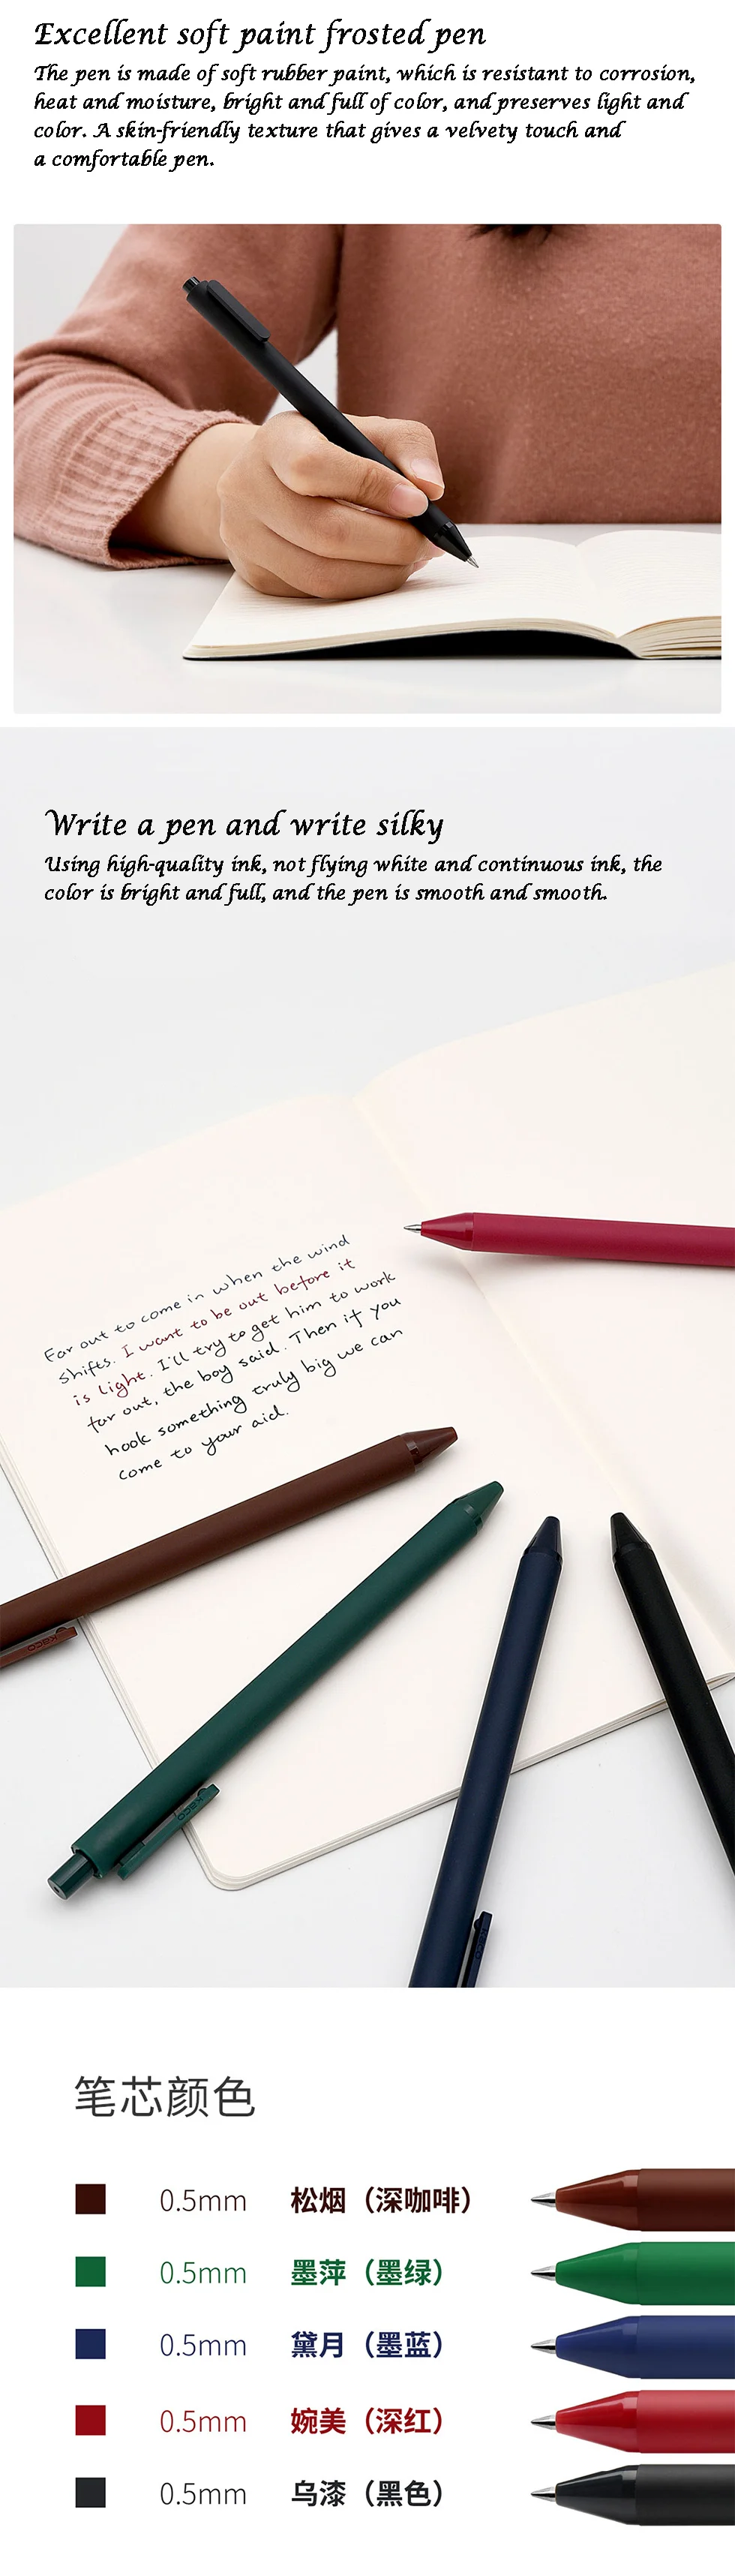 Excellent soft paint frosted pen
The pen is made of soft rubber paint, which is resistant to corrosion,
heat and moisture, bright and full of color, and preserves light and
color. A skin-friendly texture that gives a velvety touch and
a comfortable pen.
Write a pen and write silky
Using high-quality ink, not flying white and continuous ink, the
color is bright and full, and the pen is smooth and smooth.
Far out to come in when the wind
shifts. I want to be out before it
is light. I'll try to get him to work
far out, the boy said. Then if you
hook something truly big we can
come to your aid.
KACO
KACO
KACO
笔芯颜色
0.5mm 松烟（深咖啡）
0.5mm 墨萍（墨绿）
0.5mm 黛月（墨蓝）
0.5mm 婉美（深红）
0.5mm 乌漆（黑色）